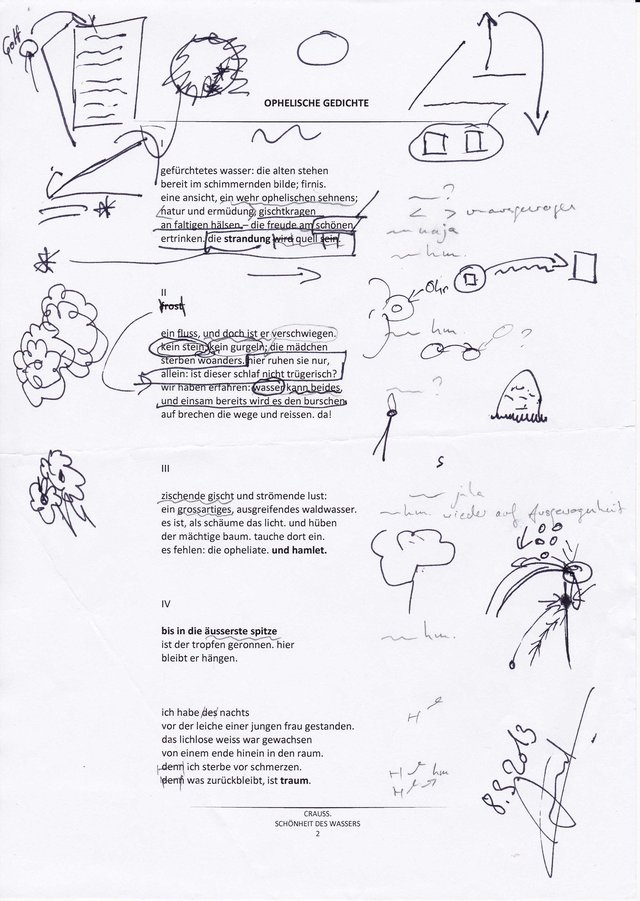 Golf
OPHELISCHE GEDICHTE
I
gefürchtetes wasser: die alten stehen
bereit im schimmernden bilde; firnis.
eine ansicht, ein wehr ophelischen sehnens;
natur und ermüdung, gischtkragen
an faltigen hälsen – die freude am schönen
ertrinken. die strandung wird quell sein.
?
naja
hm.
Ohr
II
frost
ein fluss, und doch ist er verschwiegen.
kein stein, kein gurgeln; die mädchen
sterben woanders. hier ruhen sie nur,
allein: ist dieser schlaf nicht trügerisch?
wir haben erfahren: wasser kann beides,
und einsam bereits wird es den burschen
auf brechen die wege und reissen. da!
hm.
?
?
III
zischende gischt und strömende lust:
ein grossartiges, ausgreifendes waldwasser.
es ist, als schäume das licht. und hüben
der mächtige baum. tauche dort ein.
es fehlen: die opheliate. und hamlet.
hm. wieder auf Ausgewogenheit
IV
bis in die äusserste spitze
ist der tropfen geronnen. hier
bleibt er hängen.
hm.
ich habe des nachts
vor der leiche einer jungen frau gestanden.
das lichlose weiss war gewachsen
von einem ende hinein in den raum.
denn ich sterbe vor schmerzen.
denn was zurückbleibt, ist traum.
hm
8.5.2013
CRAUSS.
SCHÖNHEIT DES WASSERS
2